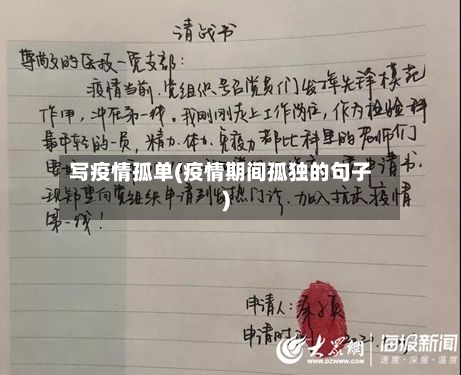 请战书
尊敬的医技一党支部:
疫情当前,党组织号召党员们发挥先锋模范
作用,冲在第一线。我刚刚走上工作岗位,作为检验科
最年轻的一员,精力、体力、免疫力都比科里的老师们
写疫情孤单(疫情期间孤独的句子
)
请书。
现郑重向党组织申请到发热门诊,加入抗击疫情
第一线!
申请人:
申请时
大众网
www.dzwww.com
海报新闻
速度·深度·温度